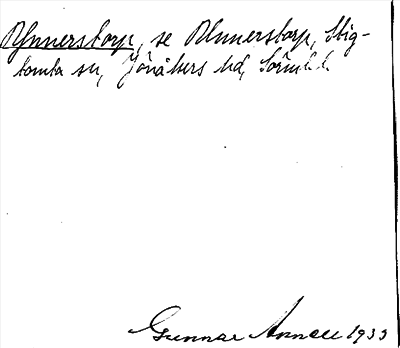 Rhunnerstorp, se Rhunnerstorp, Stig-
tomta sn, Jönåkers hd, Sörml. l.
Gunnar Annell 1933